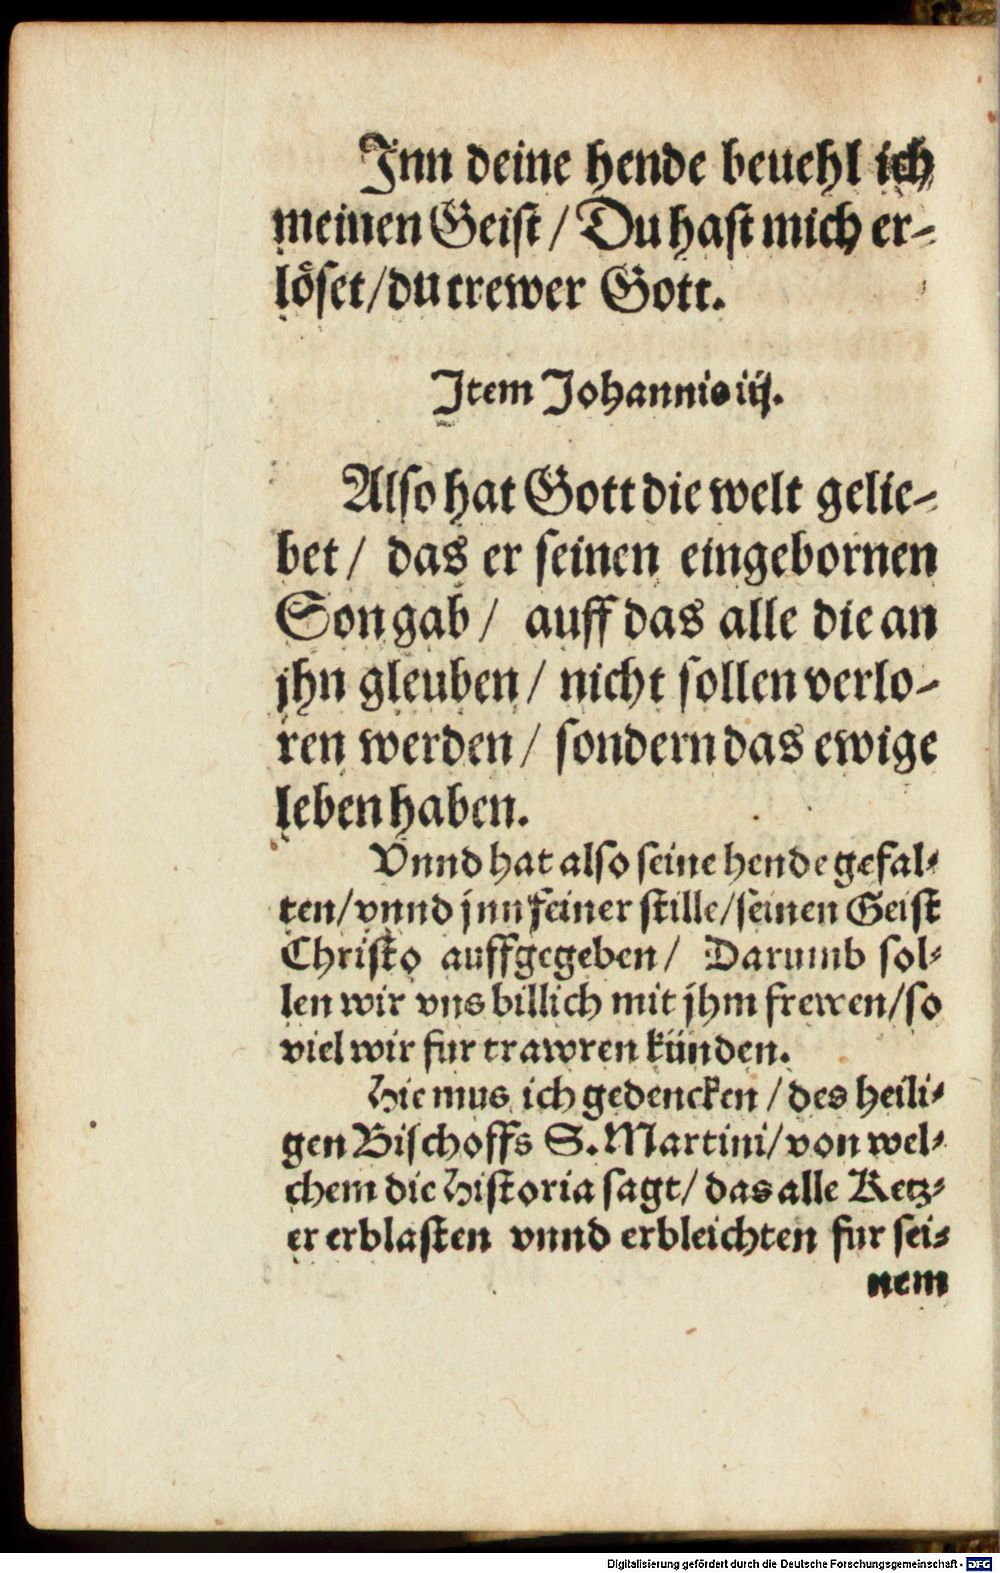 Inn deine hende beuehl ich
meinen Geist / Du hast mich er-
löset/du trewer Gott.
Item Johannis iij.
Also hat Gott die welt gelie-
bet / das er seinen eingebornen
Son gab / auff das alle die an
jhn gleuben / nicht sollen verlo-
ren werden / sondern das ewige
leben haben.
Vnnd hat also seine hende gefal-
ten/vnnd jnn feiner stille/seinen Geist
Christo auffgegeben / Darumb sol-
len wir vns billich mit jhm frewen/so
viel wir fur trawren künden.
Hie mus ich gedencken / des heili-
gen Bischoffs S. Martini/von wel-
chem die Historia sagt/ das alle Ketz-
er erblasten vnnd erbleichten fur sei-
nem
Digitalisierung gefördert durch die Deutsche Forschungsgemeinschaft - DFG